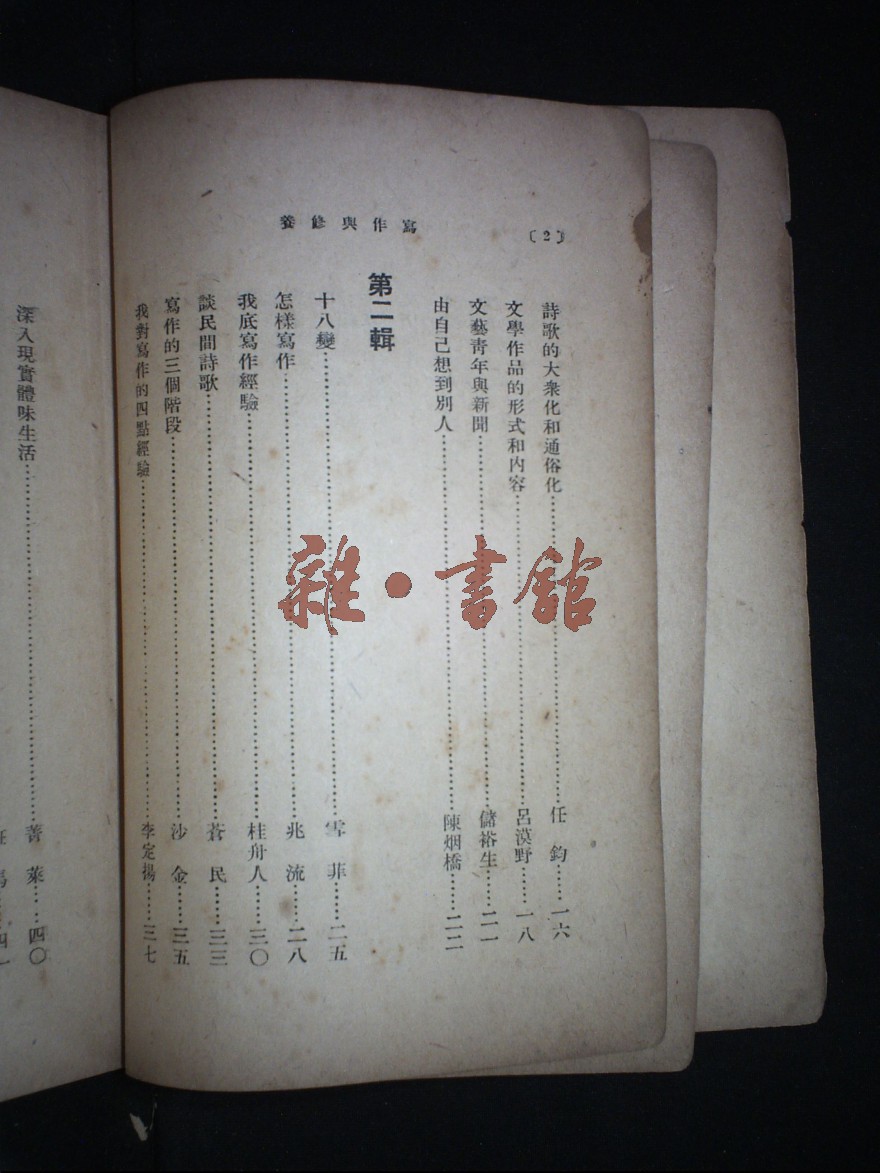 寫作與修養
〔2〕
詩歌的大衆化和通俗化……任 鈞……一六
文學作品的形式和内容……呂漠野……一八
文藝青年與新聞……儲裕生……二一
由自己想到別人……陳烟橋……二二
第二輯
十八變……雪 菲……二五
怎樣寫作……兆 流……二八
我底寫作經驗……桂舟人……三〇
談民間詩歌……蒼 民……三三
寫作的三個階段……沙 金……三五
我對寫作的四點經驗……李定揚……三七
深入現實體味生活……菁 萊……四〇
四一
雜·書館